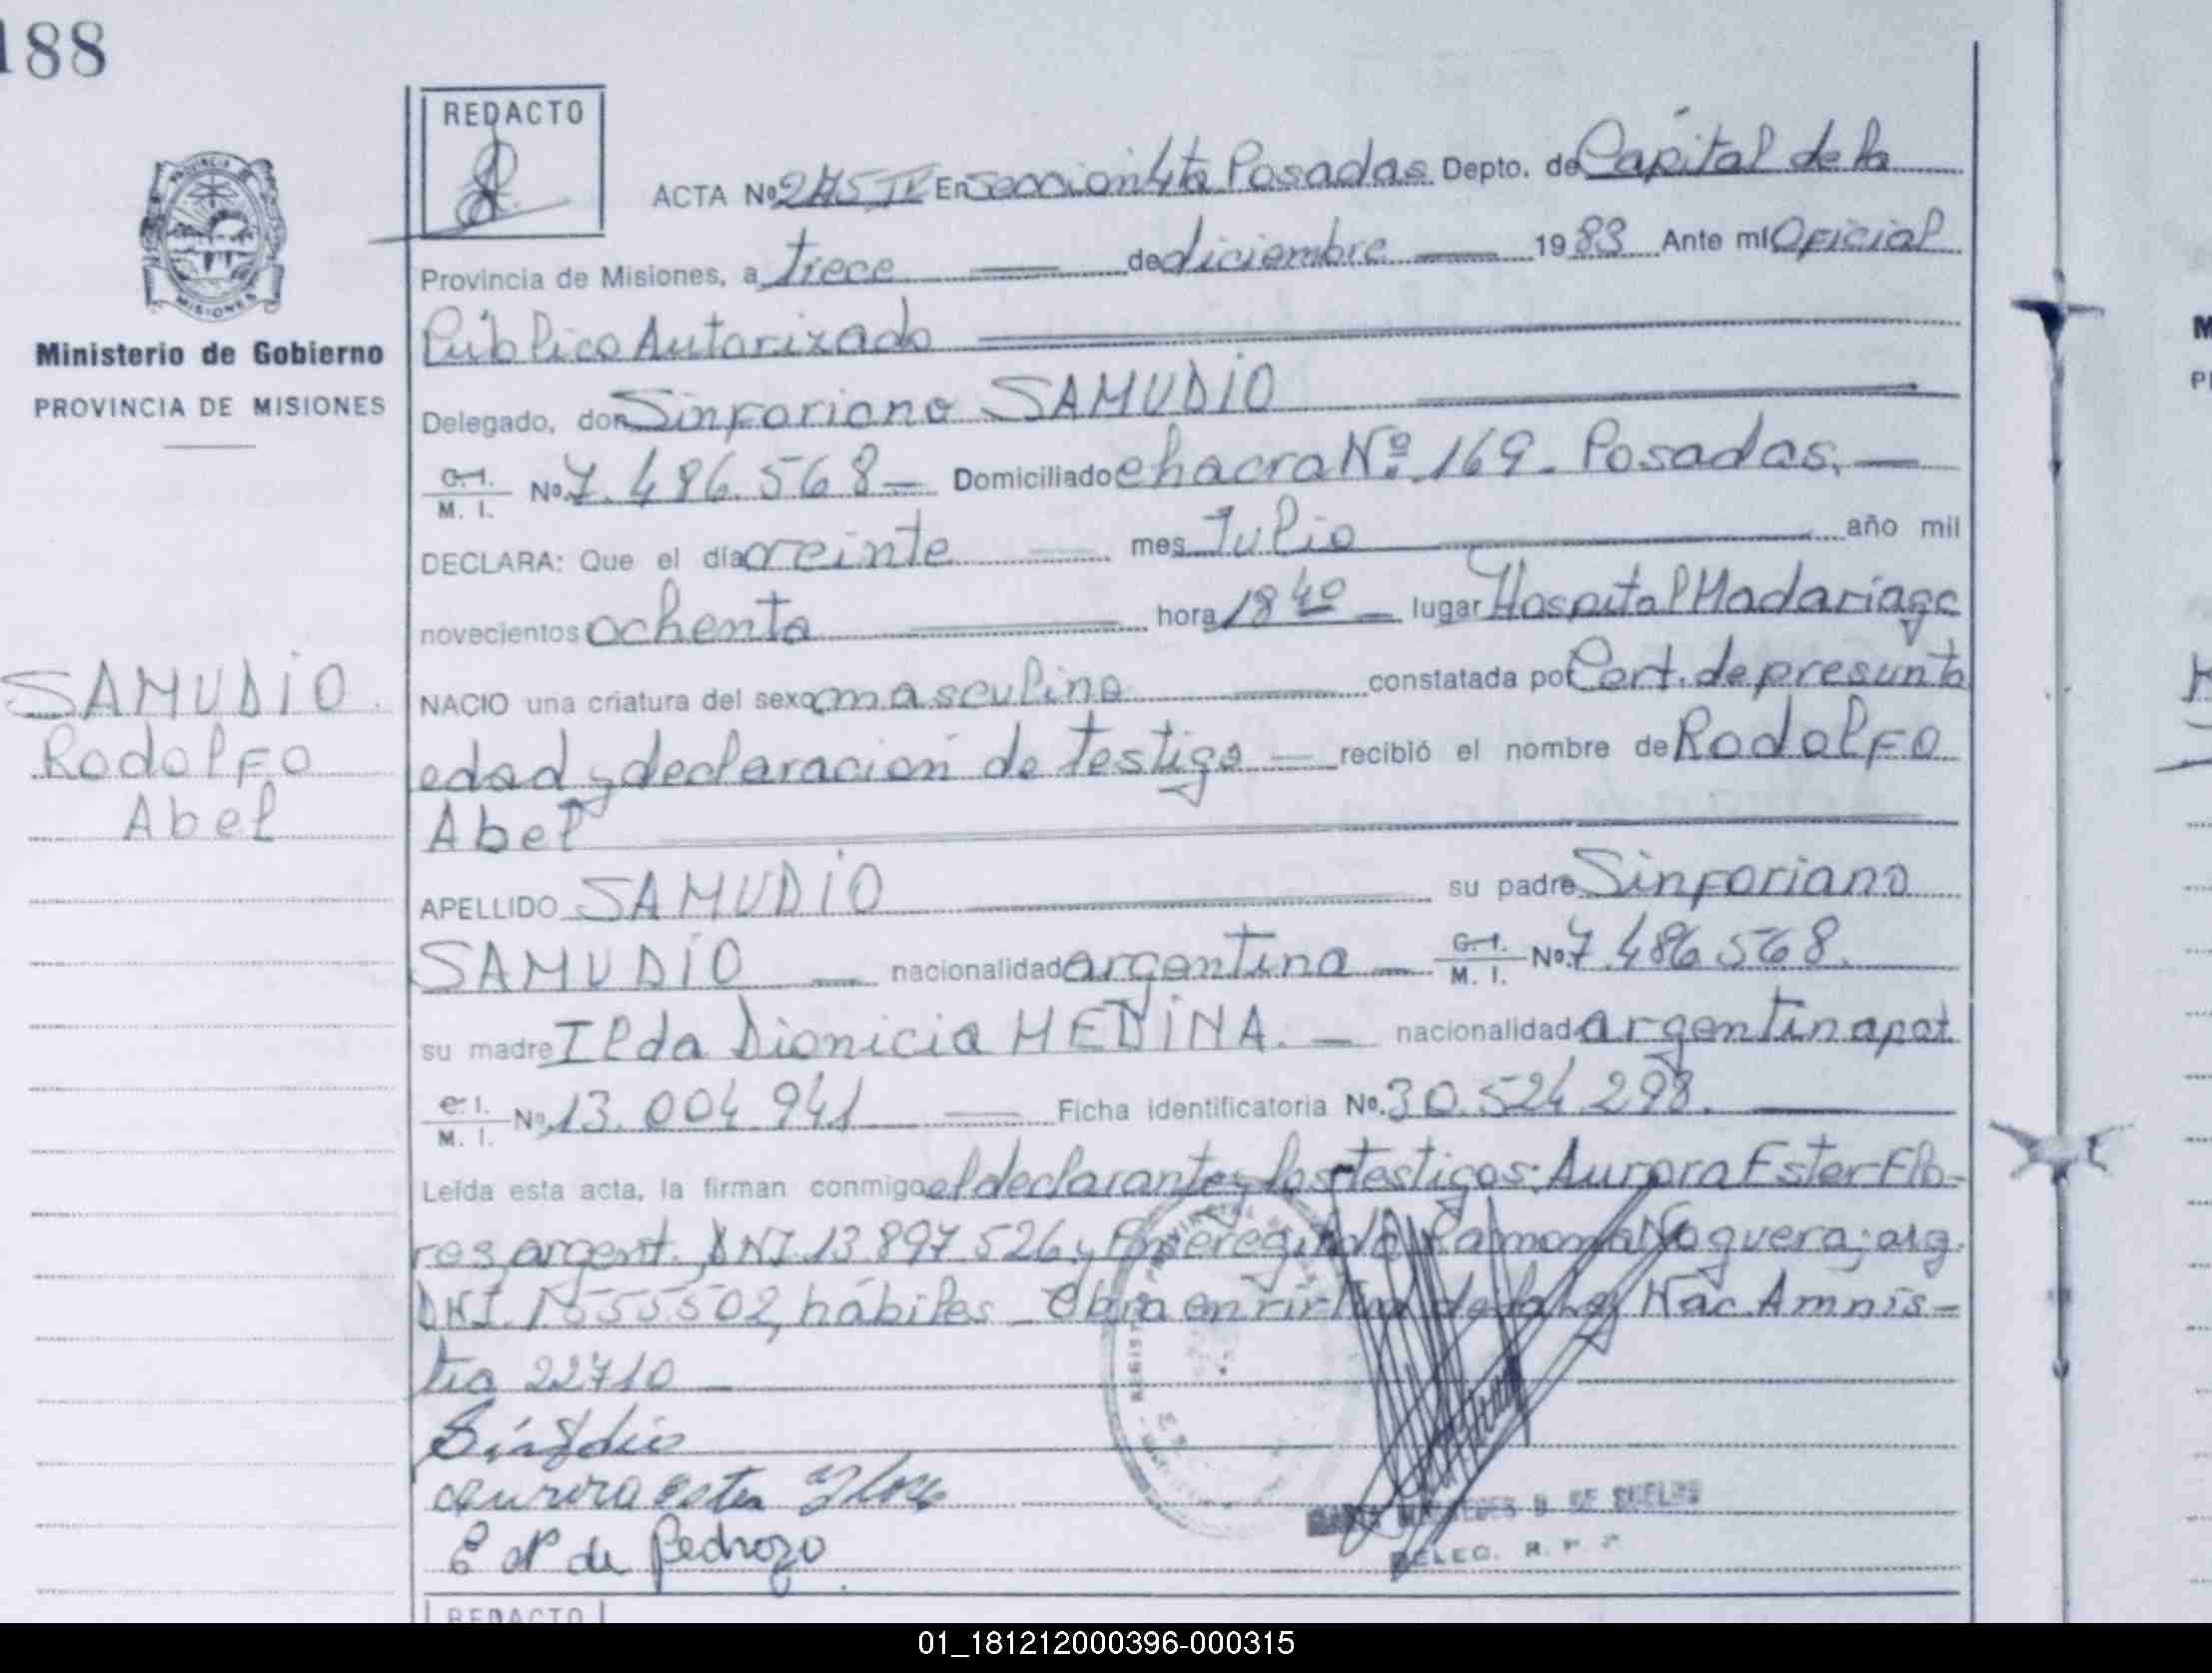 188
REDACTO
ACTA Nº 275 IV En Sección 4ta Posadas Depto. de Capital de la
Provincia de Misiones, a trece de diciembre 1983 Ante mí Oficial
Público Autorizado
Ministerio de Gobierno
PROVINCIA DE MISIONES
Delegado, don Sinforiano SAMUDIO
C.I. M. I. Nº 7.486.568 Domiciliado chacra Nº 169. Posadas.
DECLARA: Que el día veinte mes Julio año mil
novecientos ochenta hora 18 40 lugar Hospital Madariaga
SAMUDIO
Rodolfo
Abel
NACIO una criatura del sexo masculino constatada por Cert. de presunta
edad y declaración de testigo recibió el nombre de Rodolfo
Abel
APELLIDO SAMUDIO su padre Sinforiano
SAMUDIO nacionalidad argentina C.I. M. I. Nº 7.486.568.
su madre Ilda Dionicia MEDINA. nacionalidad argentina pat.
C.I. M. I. Nº 13.004.941 Ficha identificatoria Nº. 30.524.298.
Leída esta acta, la firman conmigo el declarante y los testigos: Aurora Ester Flo-
res, argent. DNI. 13.897.526 y Ramona Noguera; arg.
DNI. hábiles. Obra en virtud de la Ley Nac. Amnis-
tia 22710
Aurora Ester
E N de Pedrozo
DE SHELDS
DELEG. R. P.
REDACTO
01_181212000396-000315